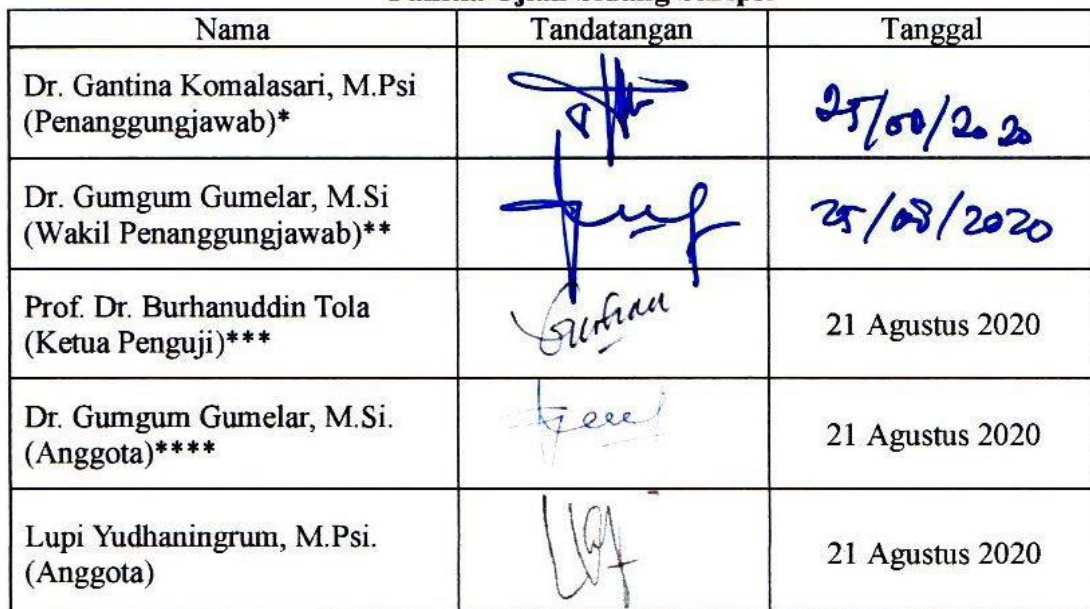 Nama Tandatangan Tanggal
Dr. Gantina Komalasari, M.Psi
(Penanggungjawab)*
25/08/2020
Dr. Gumgum Gumelar, M.Si
(Wakil Penanggungjawab)**
25/08/2020
Prof. Dr. Burhanuddin Tola
(Ketua Penguji)***
21 Agustus 2020
Dr. Gumgum Gumelar, M.Si.
(Anggota)****
21 Agustus 2020
Lupi Yudhaningrum, M.Psi.
(Anggota)
21 Agustus 2020